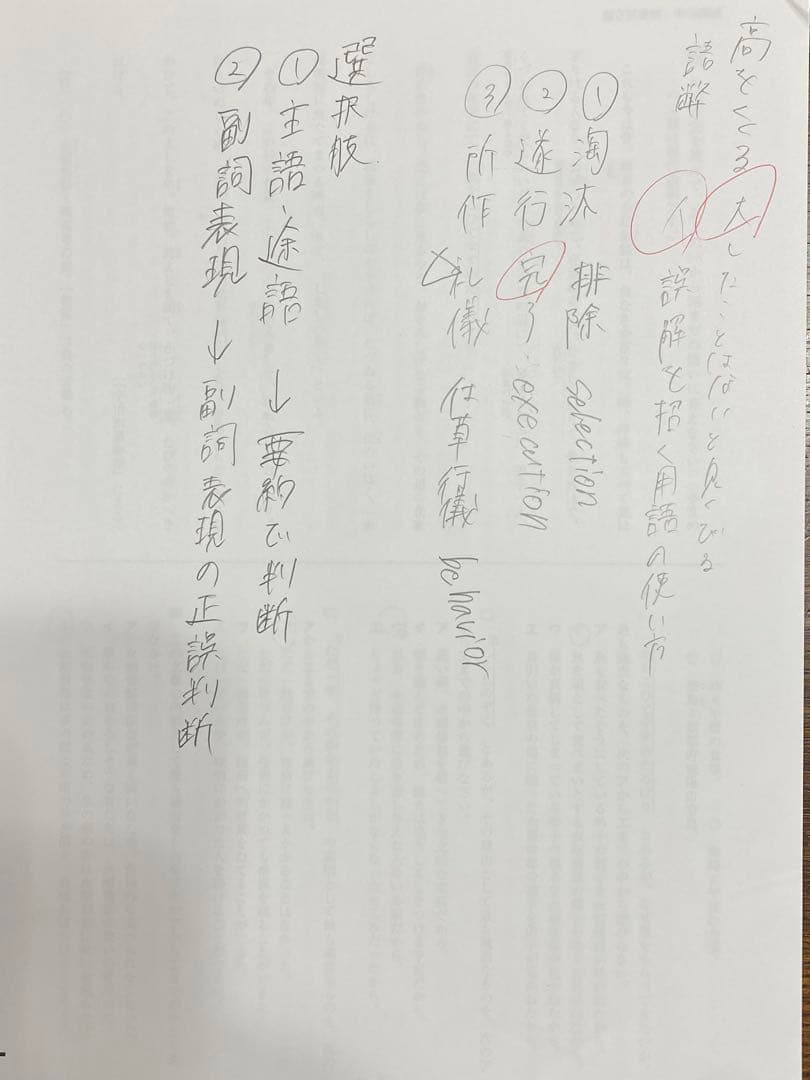 高をくくる 大したことはないと見くびる
語弊 イ 誤解を招く用語の使い方
① 淘汰 排除 selection
② 遂行 完了 execution
③ 所作 礼儀 仕草 行儀 behavior
選択肢
① 主語・途語 → 要約で判断
② 副詞表現 → 副詞表現の正誤判断